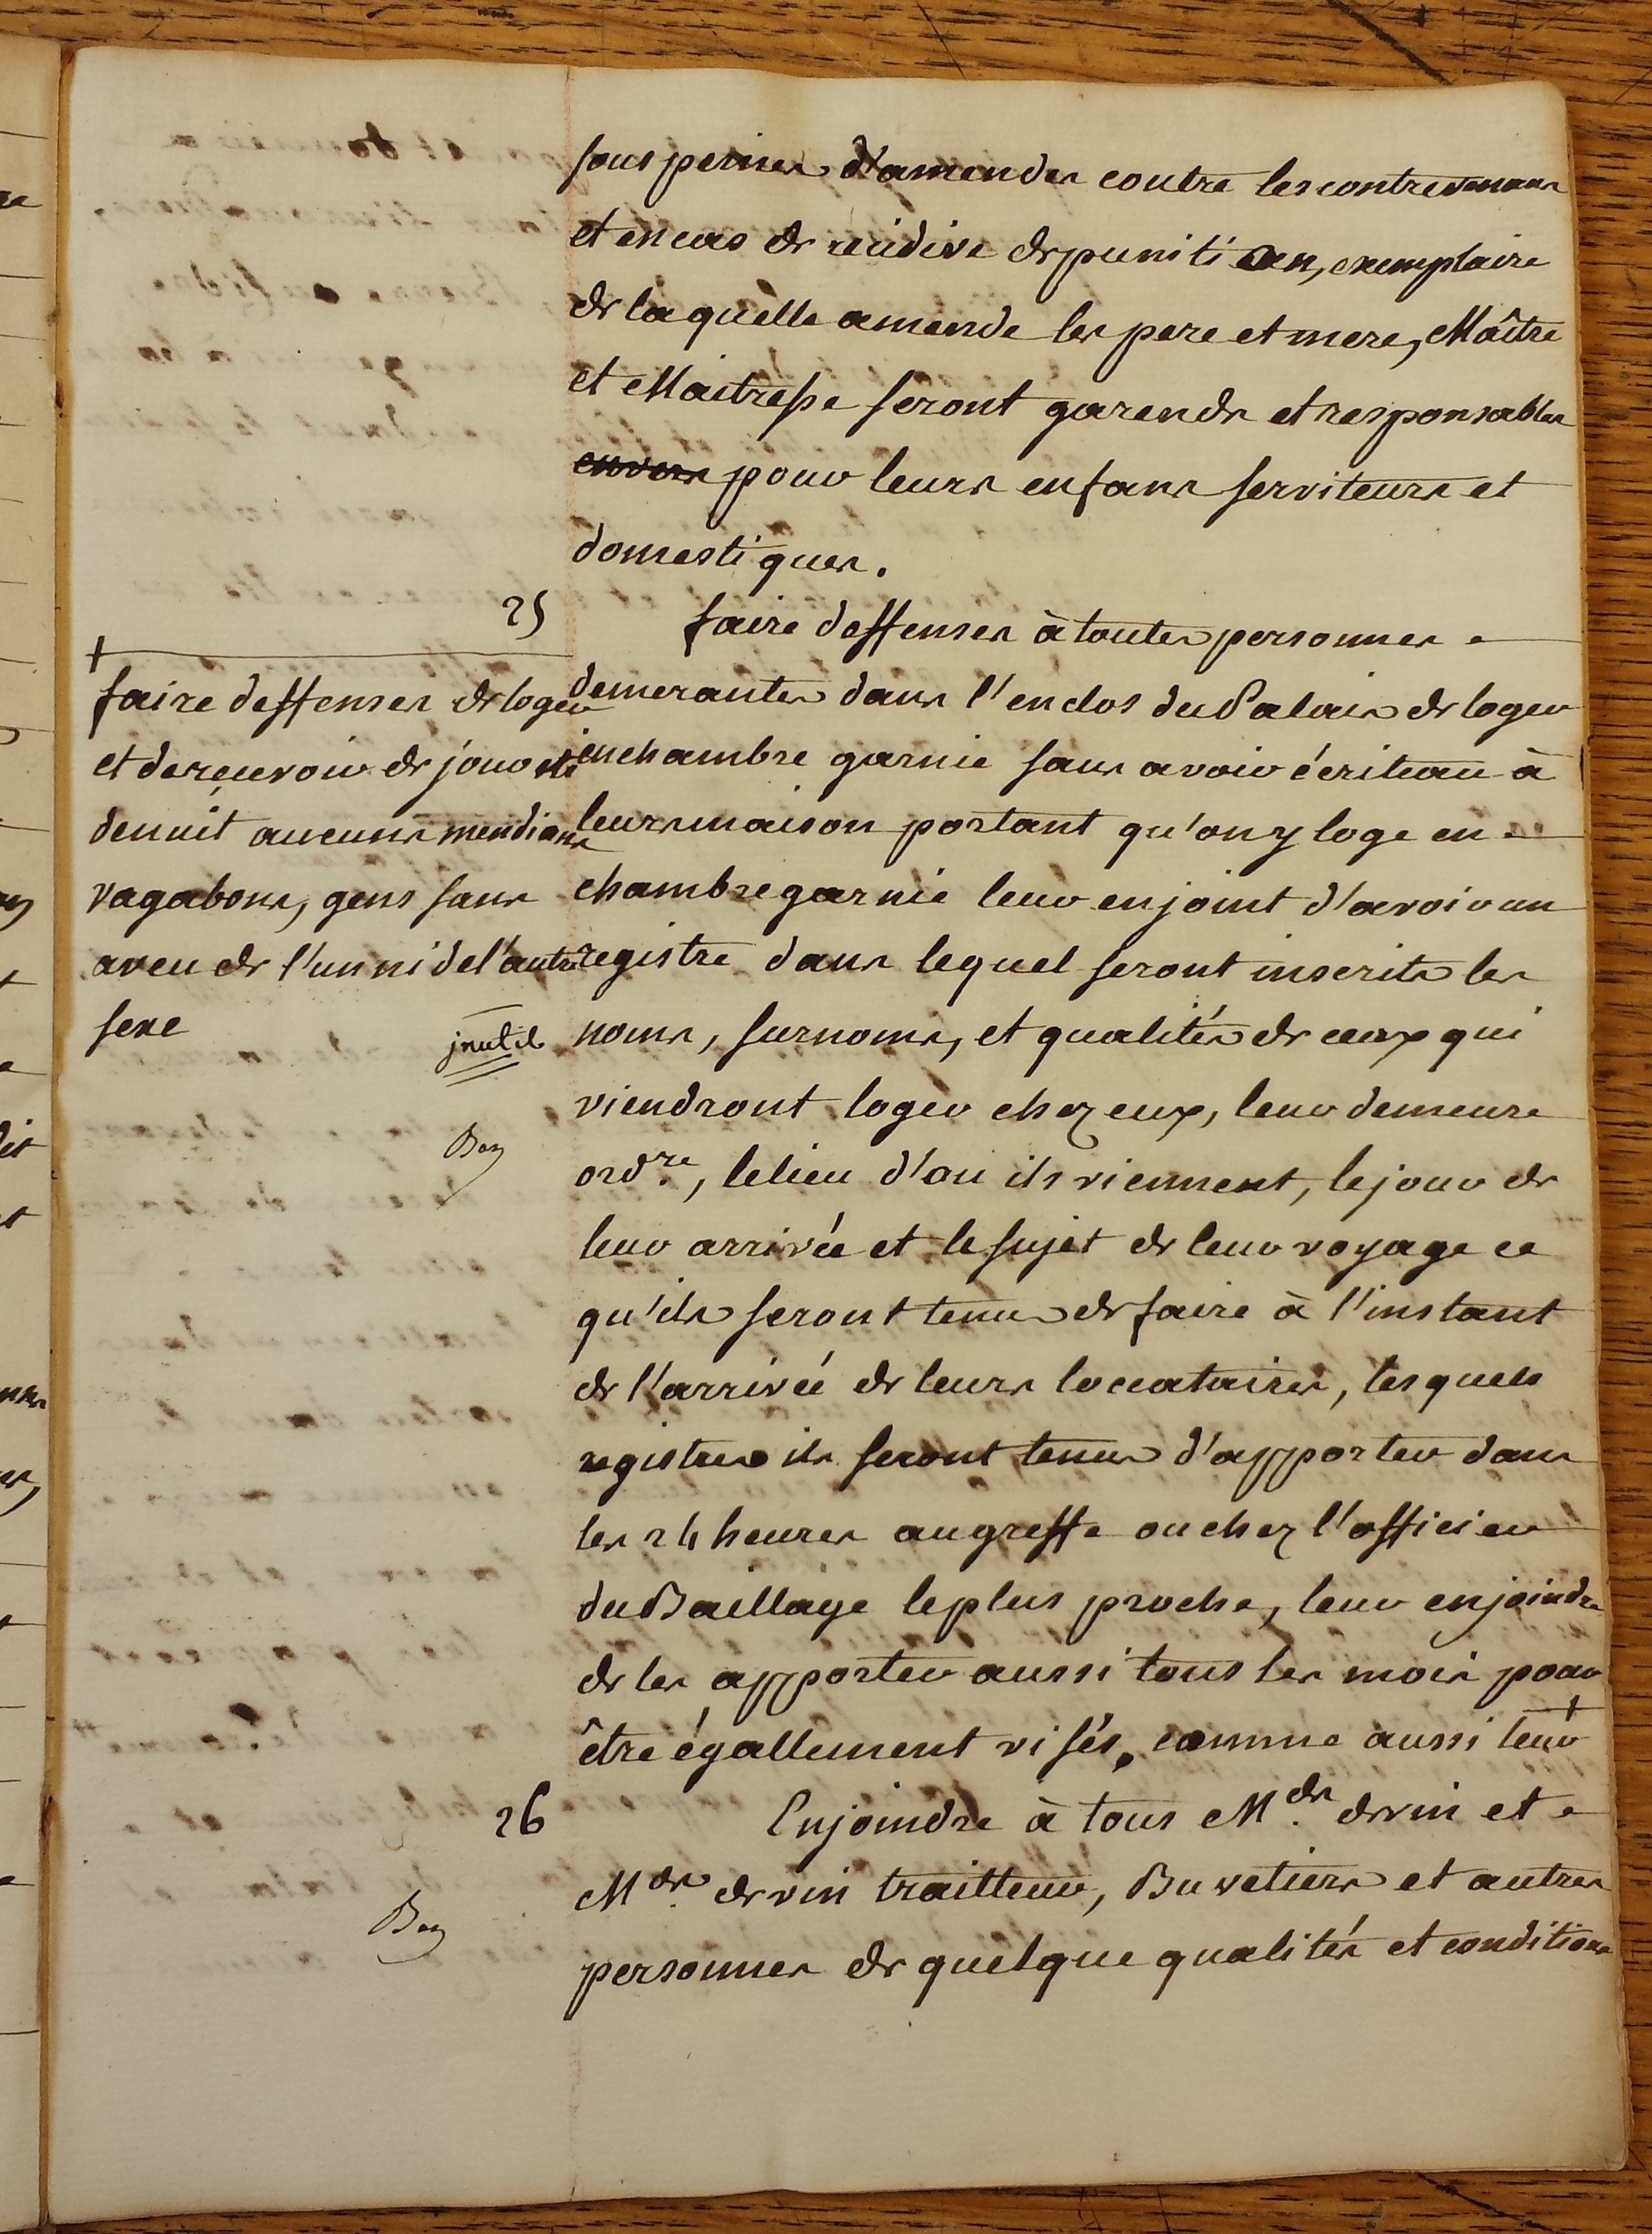 sous peines d'amendes contre les contrevenans
et en cas de recidive de punition, exemplaire
de laquelle amende les pere et mere, Maître
et Maitresse seront garends et responsables
envers pour leurs enfans serviteurs et
domestiques.
25
faire deffenses à toutes personnes
demerantes dans l'enclos du Palais de loger
en chambre garnie sans avoir écriteau à
leurs maison portant qu'on y loge en
chambre garnie leur enjoint d'avoir un
registre dans lequel seront inscrits les
noms, surnoms, et qualités de ceux qui
viendront loger chez eux, leur demeure
ordre, le lieu d'ou ils viennent, le jour de
leur arrivée et le sujet de leur voyage ce
qu'ils seront tenus de faire à l'instant
de l'arrivée de leurs loccataires, lesquels
registres ils seront tenus d'apporter dans
les 24 heures au greffe ou chez l'officier
du Baillage le plus proche, leur enjoindre
de les apporter aussi tous les mois pour
être égallement visés, comme aussi leur +
+
faire deffenses de loger
et de recevoir de jour ni
de nuit aucuns mendians
vagabons, gens sans
aveu de l'un ni de l'autre
sexe
inutil
Bon
26
Enjoindre à tous Mds. de vin et
Mds. de vin traitteur, Buvetiers et autres
personnes de quelque qualités et conditions
Bon